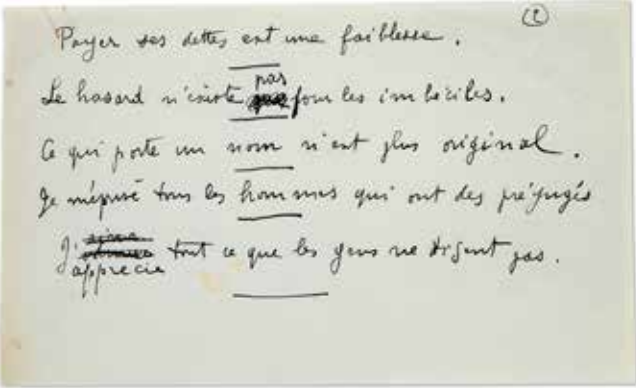 (2)
Payer ses dettes est une faiblesse.
pas
Le hasard n'existe pour les imbéciles.
Ce qui porte un nom n'est plus original.
Je méprise tous les hommes qui ont des préjugés
J' tout ce que les gens ne disent pas.
apprecie